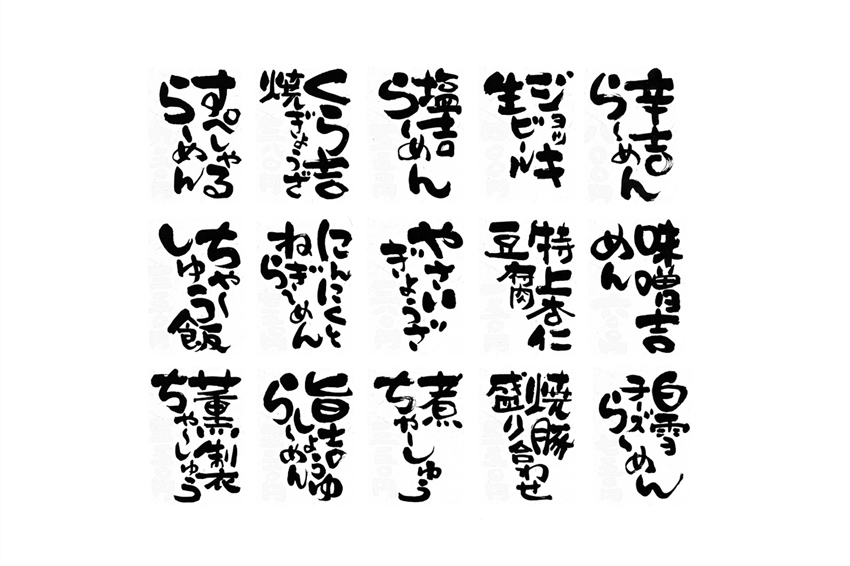 辛吉
らーめん
ジョッキ
生ビール
塩吉
らーめん
くら吉
焼ぎょうざ
すぺしゃる
らーめん
味噌吉
めん
特上杏仁
豆腐
やさい
ぎょうざ
にんにくと
ねぎらーめん
ちゃー
しゅう飯
白雪
チーズらーめん
焼豚
盛り合わせ
煮
ちゃーしゅう
旨吉しょうゆ
らーめん
薫製
ちゃーしゅう